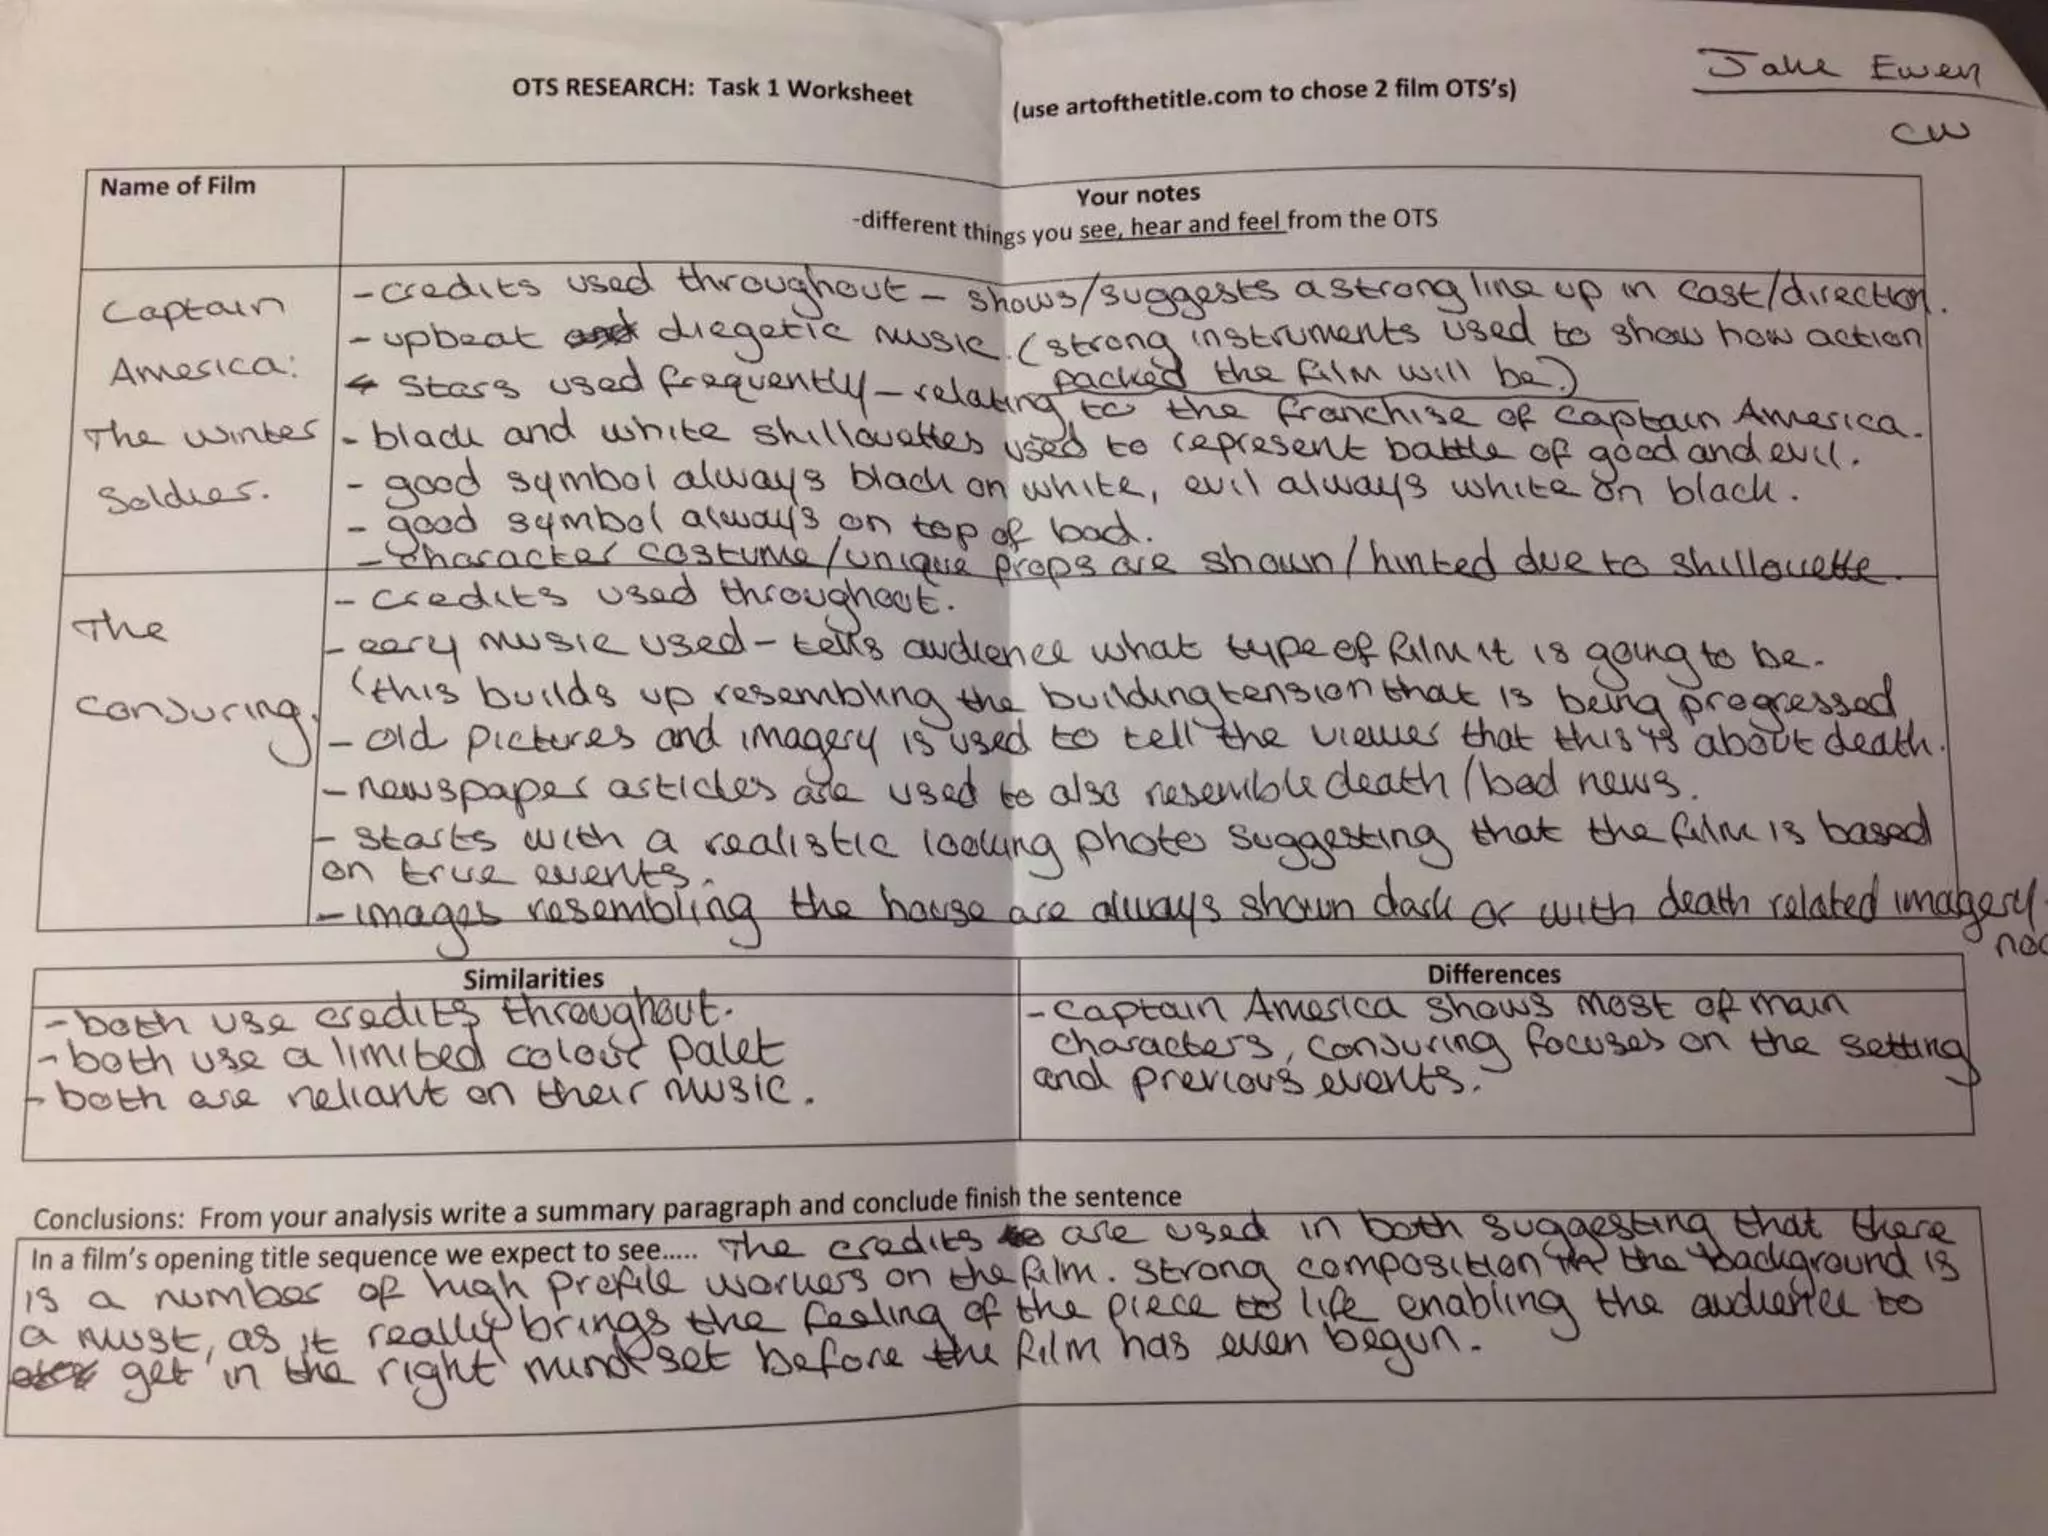 OTS RESEARCH: Task 1 Worksheet (use artofthetitle.com to chose 2 film OTS's)
Jake Ewen
CW
Name of Film
Your notes
-different things you see, hear and feel from the OTS
Captain
America:
The Winter
Soldier.
- credits used throughout - shows/suggests a strong line up in cast/direction.
- upbeat diegetic music. (strong instruments used to show how action
packed the film will be.)
- Stars used frequently - relating to the franchise of Captain America.
- black and white shillouettes used to represent battle of good and evil.
- good symbol always black on white, evil always white on black.
- good symbol always on top of bad.
- Character costume/unique props are shown/hinted due to shillouette.
The
Conjuring.
- credits used throughout.
- eery music used - tells audience what type of film it is going to be.
(this builds up resembling the building tension that is being progressed
- old pictures and imagery is used to tell the viewer that this is about death.
- newspaper articles are used to also resemble death/bad news.
- starts with a realistic looking photo suggesting that the film is based
on true events.
- images resembling the house are always shown dark or with death related imagery
Similarities
- both use credits throughout.
- both use a limited colour palet
- both are reliant on their music.
Differences
- Captain America shows most of main
characters, Conjuring focuses on the setting
and previous events.
Conclusions: From your analysis write a summary paragraph and conclude finish the sentence
In a film's opening title sequence we expect to see..... The credits are used in both suggesting that there
is a number of high profile workers on the film. Strong composition in the background is
a must, as it really brings the feeling of the piece to life enabling the audience to
get in the right mindset before the film has even begun.